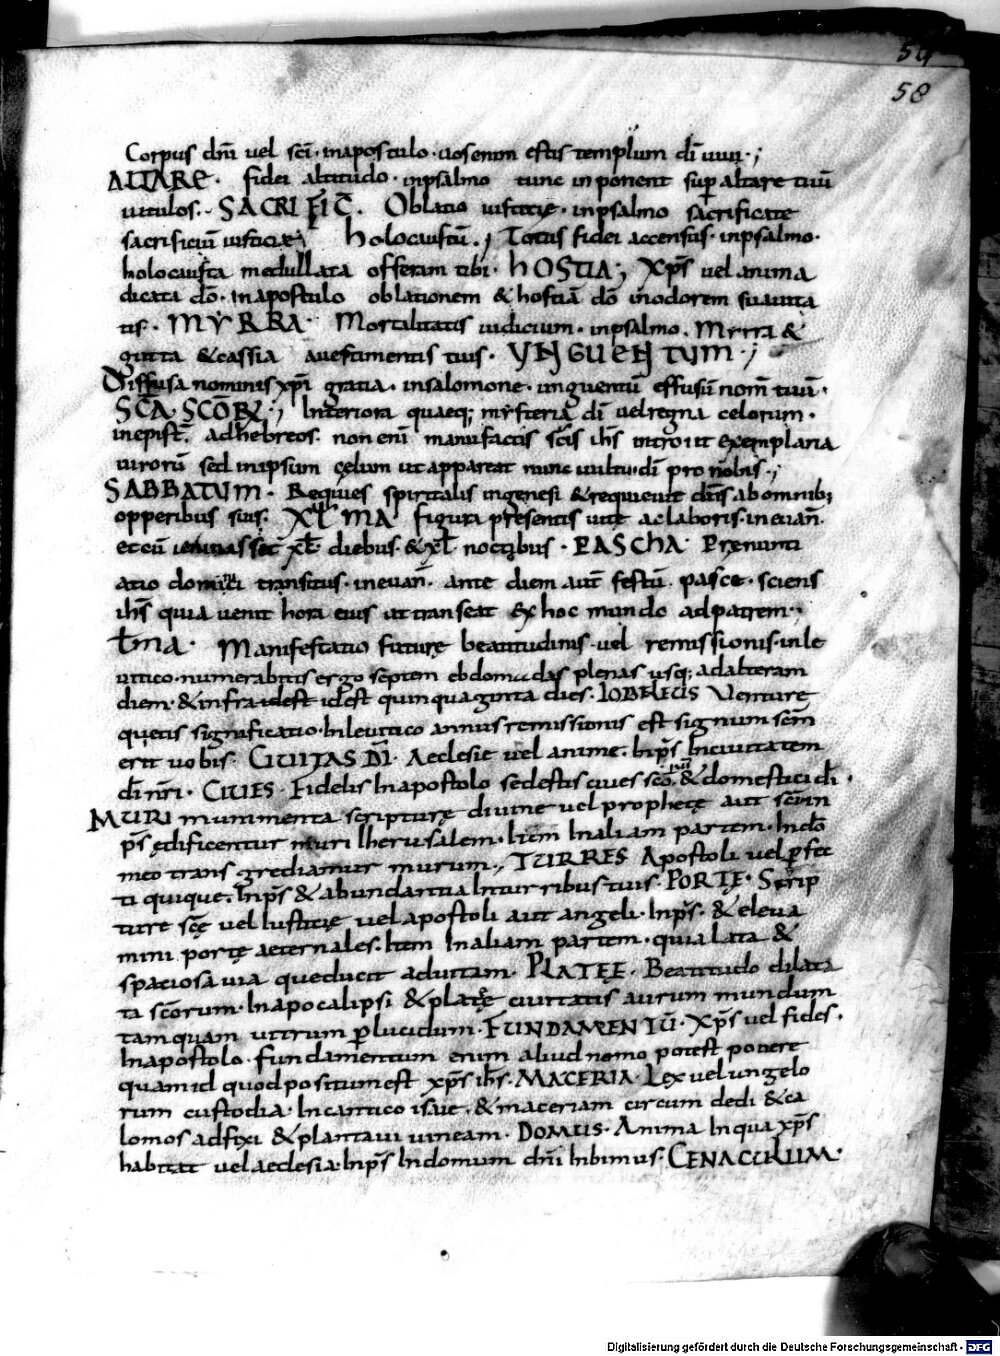 54
58
Corpus dn̄i vel sc̄i · in apostulo · vos enim estis templum dī vivi ·;
ALTARE · fidei altitudo · in psalmo tunc inponent sup altare tuū
vitulos · SACRIFIC̄ · Oblatio iustitię · in psalmo sacrificate
sacrificiū iustitię holocaustū ·; Totus fidei accensus · in psalmo ·
holocausta medullata offeram tibi · HOSTIA ·; Xp̄s vel anima
dicata dō · in apostulo oblationem & hostiā dō in odorem suavita
tis · MYRRA · Mortalitatis iudicium · in psalmo · Myrra &
gutta & cassia a vestimentis tuis · UNGUENTUM ·;
Diffusa nominis xp̄i gratia · in salomone · unguentū effusū nom̄ tuū ·
SC̄A · SC̄ORꝶ ·; Interiora quaeq; mysteria dī vel regna celorum ·
in epist̄ · ad hebreos · non enī manufactis sc̄is ih̄s introiit exemplaria
virorū sed in ipsum cęlum ut appareat nunc vultui dī pro nobis ·;
SABBATUM · Requies spiritalis in genesi & requievit dn̄s ab omnib;
opperibus suis · XL MA figura presentis vitę ac laboris · in evan̄ ·
et cū ieiunasset xl diebus · & xl noctibus · PASCHA · Prenunti
atio dominici transitus · in evan̄ · ante diem aut̄ festū · pasce · sciens
ih̄s quia venit hora eius ut transeat ex hoc mundo ad patrem ·;
L ma · Manifestatio futurę beatitudinis · vel remissionis · in le
vitico · numerabitis ergo septem ebdomadas plenas usq; ad alteram
diem · & infra id est quinquaginta dies · IOBELEUS Venturę
quetis significatio · In levitico annus remissionis est signum sem̄
erit vobis · CIVITAS DĪ · Aeclesie vel anime · In p̄s In civitatem
dī nr̄i · CIVES · Fidelis In apostolo sed estis cives sc̄o & domestici dī ·
MURI munimenta scripturę divine vel prophetę aut sem̄ in
p̄s ędificentur muri Iherusalem · Item In aliam partem · In dō
meo transgrediamur murum ·; TURRES Apostoli vel p̄fec
ti quique · In p̄s & abundantia In turribus tuis · PORTĘ · Scrip
ture sc̄ę vel Iustitię vel apostoli aut angeli · In p̄s · & eleva
mini portę aeternales · Item In aliam partem · quia lata &
spatiosa via que ducit ad vitam · PLATĘĘ · Beatitudo dilata
ta sc̄orum · In apocalipsi & platęę civitatis aurum mundum
tamquam vitrum p̄lucidum · FUNDAMENTŪ · Xp̄s vel fides ·
In apostolo · fundamentum enim aliud nemo potest ponere
quam id quod positum est xp̄s ih̄s · MACERIA · Lex vel angelo
rum custodia · In cantico isaie · & maceriam circum dedi & ca
lomos adfixi & plantavi vineam · DOMUS · Anima In qua xp̄s
habitat vel aeclesia · In p̄s In domum dn̄i Ibimus · CENACULUM ·
Digitalisierung gefördert durch die Deutsche Forschungsgemeinschaft - DFG